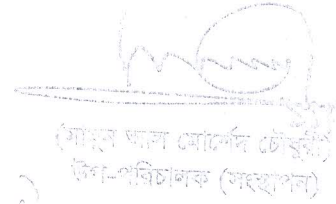 (মামুন আল মোর্শেদ চৌধুরী)
উপ-পরিচালক (সংস্থাপন)